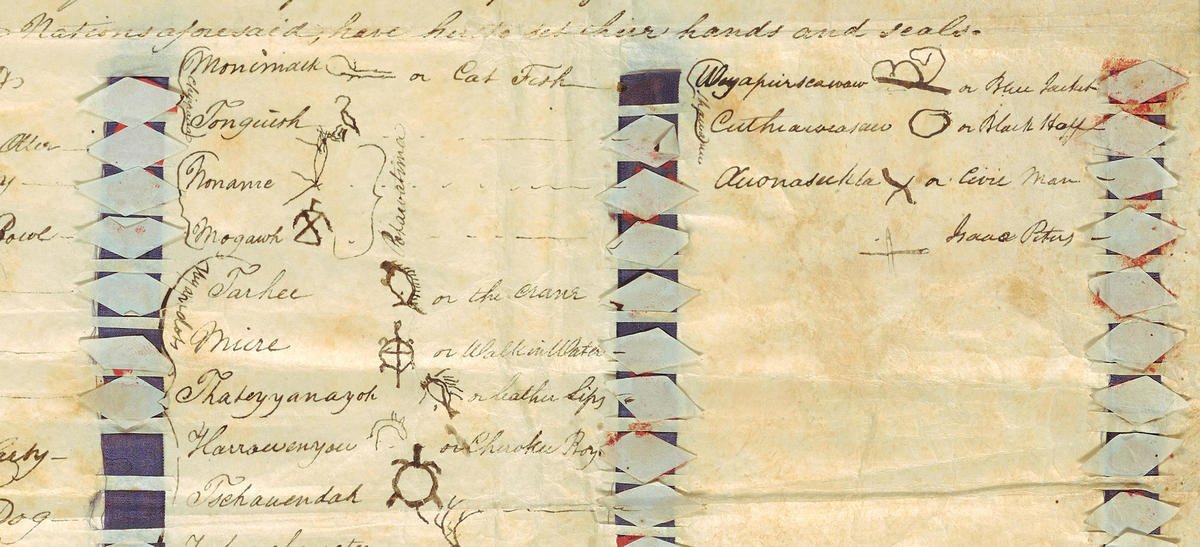 Nations aforesaid, have hereto set their hands and seals.
Monimack or Cat Fish
Tonquish
Noname
Mogawh
Potawatimas
Wyandots
Tarhee or the Crane
Miere or Walk in Water
Thateyyanayoh or leather Lips
Harrowenyou or Cherokee Boy
Tschauendah
Shawanees
Weyapurseawaw or Blue Jacket
Cutheaweasaw or Black Hoff
Auonasechla or Civil Man
Isaac Peters
Bowl
Dog